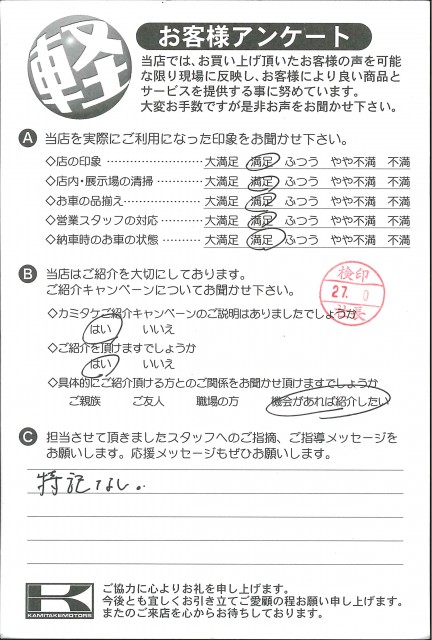 軽
お客様アンケート
当店では、お買い上げ頂いたお客様の声を可能
な限り現場に反映し、お客様により良い商品と
サービスを提供する事に努めています。
大変お手数ですが是非お声をお聞かせ下さい。
A 当店を実際にご利用になった印象をお聞かせ下さい。
◇店の印象 ………………… 大満足 満足 ふつう やや不満 不満
◇店内・展示場の清掃 ………… 大満足 満足 ふつう やや不満 不満
◇お車の品揃え ……………… 大満足 満足 ふつう やや不満 不満
◇営業スタッフの対応 ………… 大満足 満足 ふつう やや不満 不満
◇納車時のお車の状態 ………… 大満足 満足 ふつう やや不満 不満
B 当店はご紹介を大切にしております。
ご紹介キャンペーンについてお聞かせ下さい。
検印
27
社長
◇カミタケご紹介キャンペーンのご説明はありましたでしょうか
はい いいえ
◇ご紹介を頂けますでしょうか
はい いいえ
◇具体的にご紹介頂ける方とのご関係をお聞かせ頂けますでしょうか
ご親族 ご友人 職場の方 機会があれば紹介したい
C 担当させて頂きましたスタッフへのご指摘、ご指導メッセージを
お願いします。応援メッセージもぜひお願いします。
特記なし。
K
KAMITAKEMOTORS
ご協力に心よりお礼を申し上げます。
今後とも宜しくお引き立てご愛顧の程お願い申し上げます。
またのご来店を心からお待ちしております。